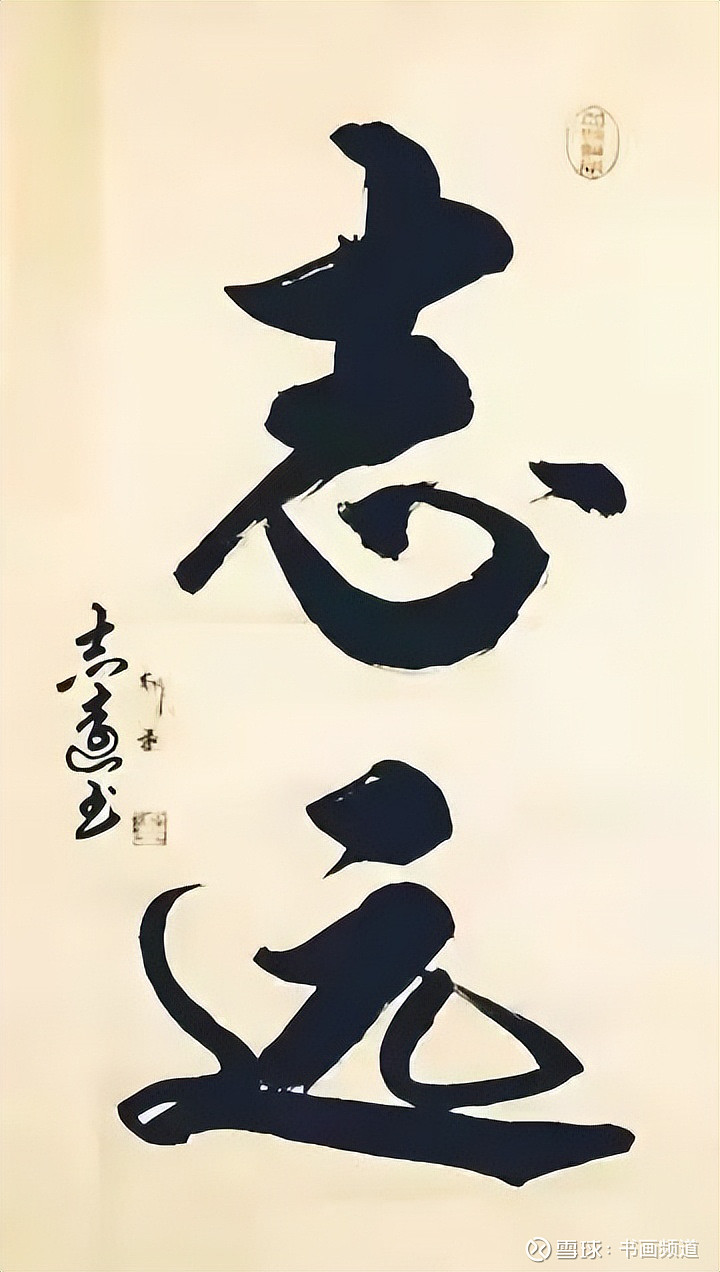 志远
志遠书
雪球：书画频道